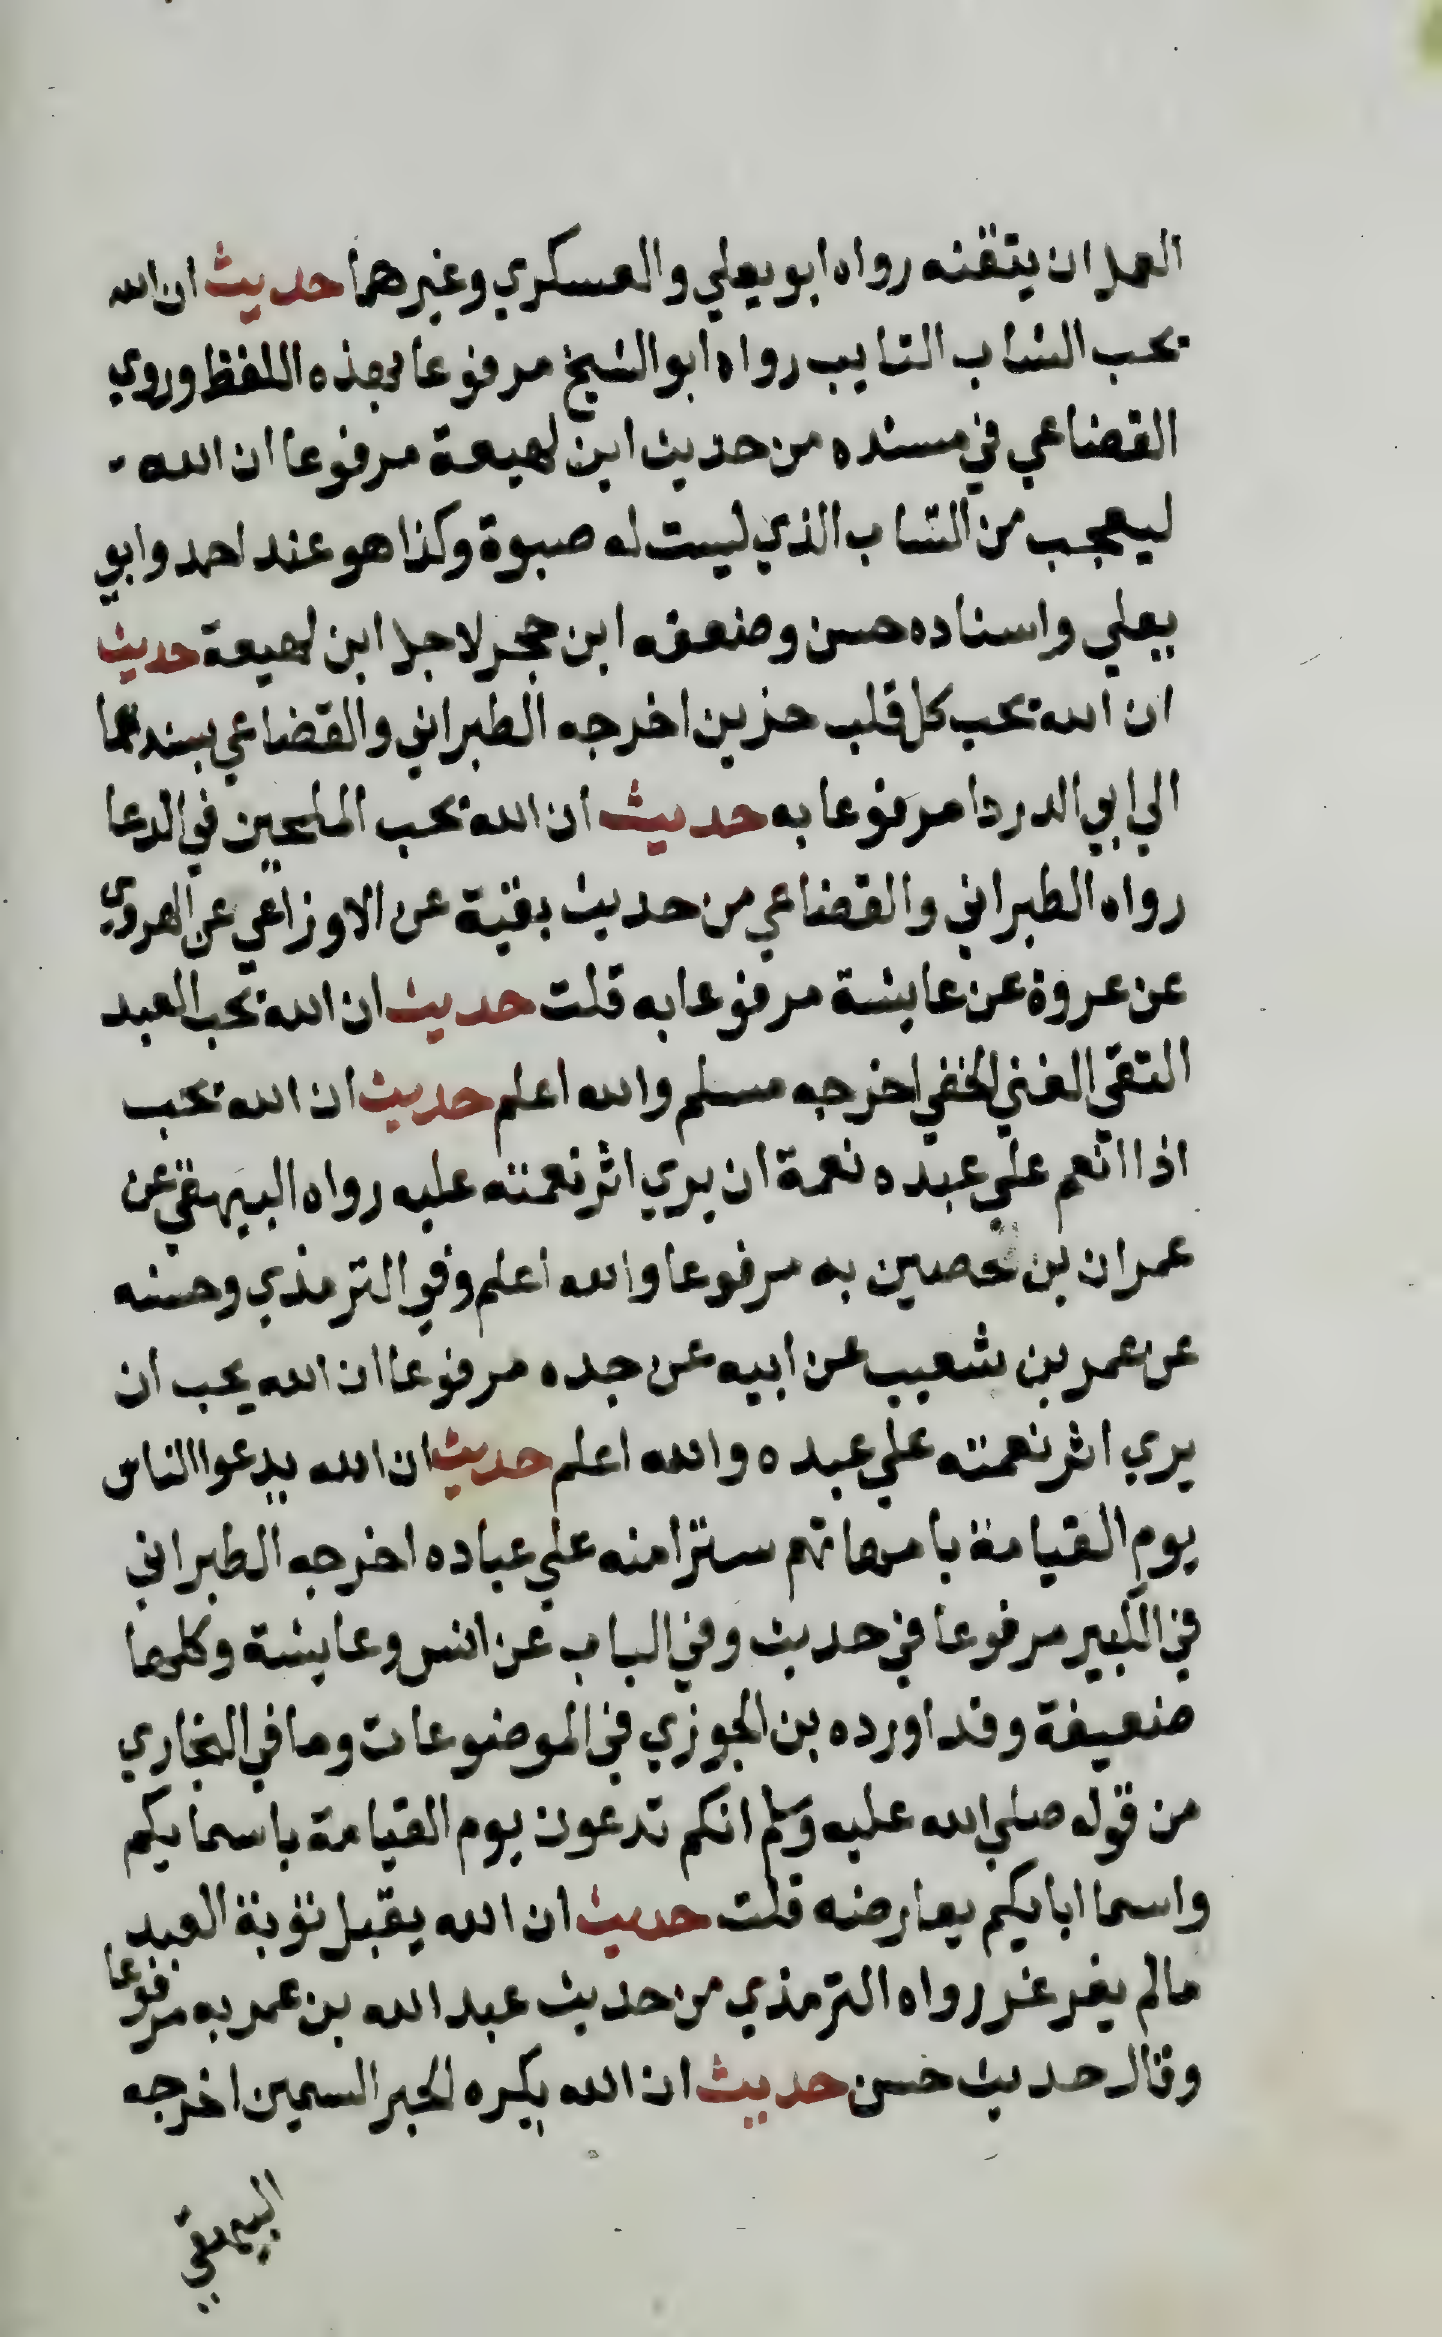 العمل ان يتقنه رواه ابو يعلي والعسكري وغيرهما حديث ان الله
يحب الشاب التايب رواه ابو الشيخ مرفوعا بهذه اللفظ وروي
القضاعي في مسنده من حديث ابن لهيعة مرفوعا ان الله
ليعجب من الشاب الذي ليست له صبوة وكذا هو عند احمد وابي
يعلي واسناده حسن وضعفه ابن حجر لاجل ابن لهيعة حديث
ان الله يحب كل قلب حزين اخرجه الطبراني والقضاعي بسندهما
الي ابي الدردا مرفوعا به حديث ان الله يحب الملحين في الدعا
رواه الطبراني والقضاعي من حديث بقية عن الاوزاعي عن
عن عروة عن عايشة مرفوعا به قلت حديث ان الله يحب العبد
التقي الغني الخفي اخرجه مسلم والله اعلم حديث ان الله يحب
اذا انعم علي عبده نعمة ان يري اثر نعمته عليه رواه البيهقي عن
عمران بن حصين به مرفوعا والله اعلم وفي الترمذي وحسنه
عن عمر بن شعيب عن ابيه عن جده مرفوعا ان الله يحب ان
يري اثر نعمته علي عبده والله اعلم حديث ان الله يدعوا الناس
يوم القيامة بامهاتهم سترا منه علي عباده اخرجه الطبراني
في الكبير مرفوعا في حديث وفي الباب عن انس وعايشة وكلها
ضعيفة وقد اورده بن الجوزي في الموضوعات وما في البخاري
من قوله صلي الله عليه وسلم انكم تدعون يوم القيامة باسمايكم
واسما ابايكم يعارضه قلت حديث ان الله يقبل توبة العبد
مالم يغرغر رواه الترمذي من حديث عبد الله بن عمر به مرفوعا
وقال حديث حسن حديث ان الله يكره الحبر السمين اخرجه
البيهقي